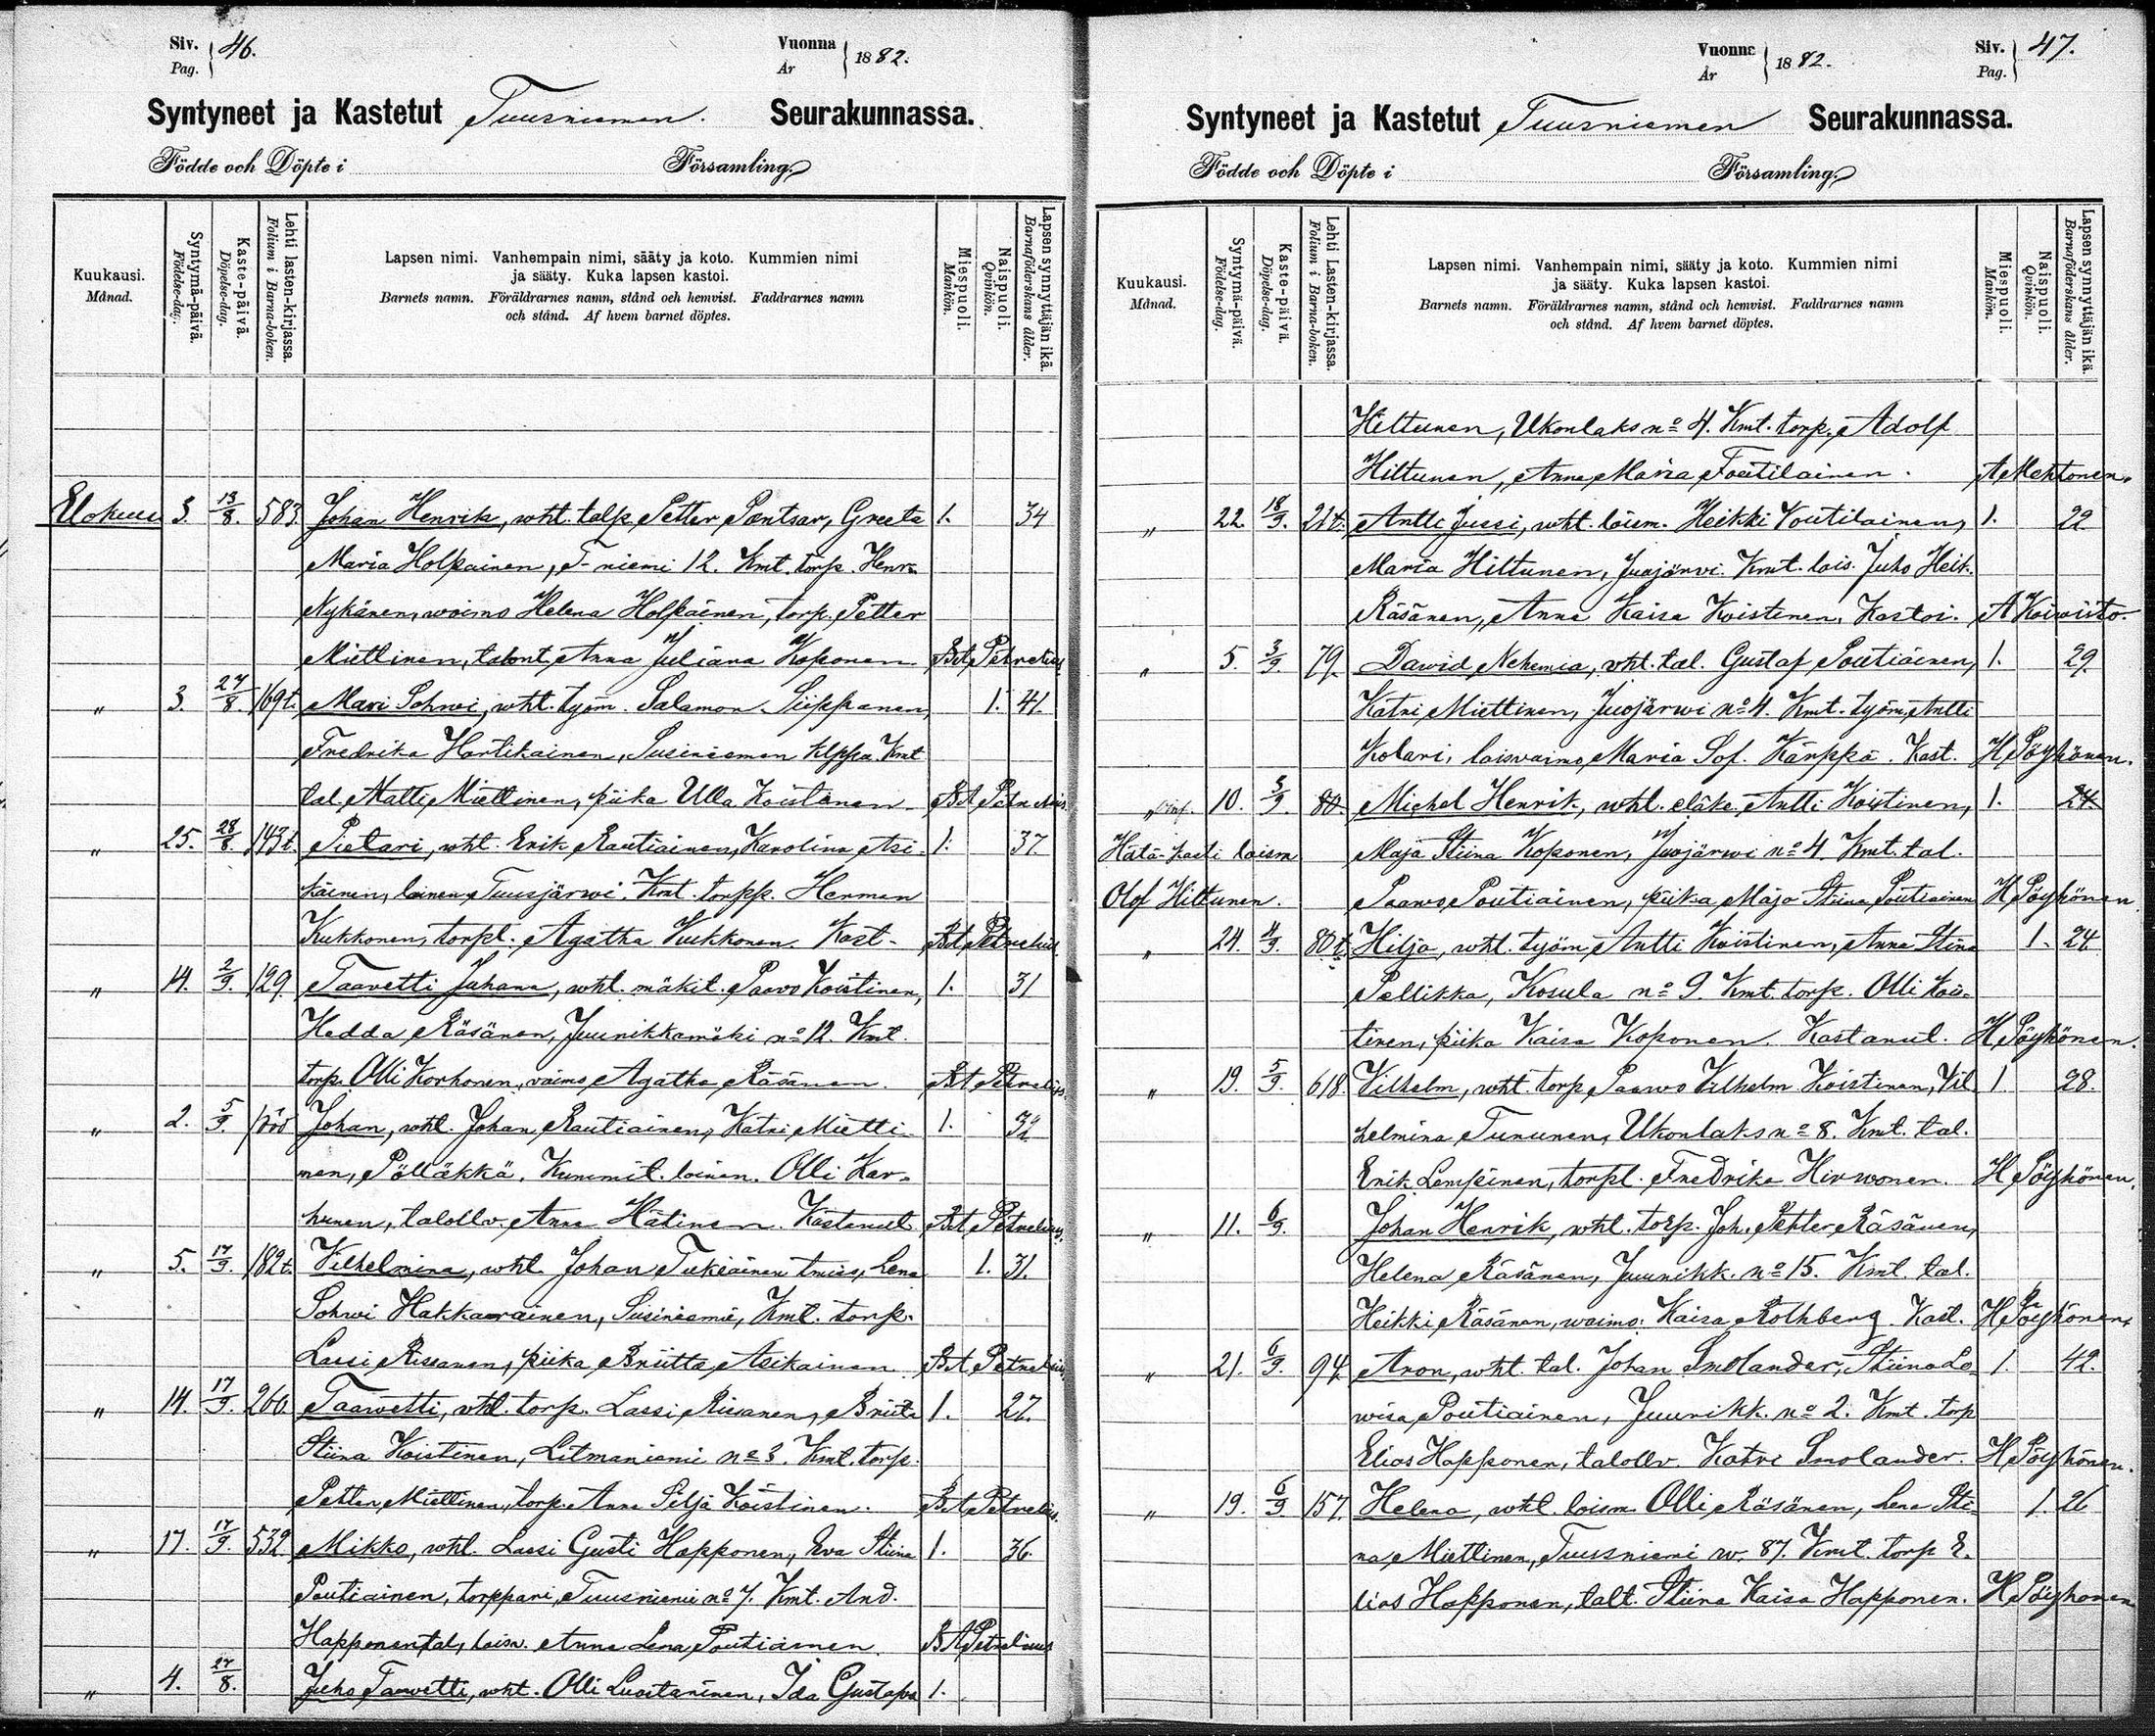 Siv. Pag. } 46.
Vuonna År { 1882.
Syntyneet ja Kastetut Tuusniemen. Seurakunnassa.
Födde och Döpte i Församling.
Kuukausi. Månad.
Syntymä-päivä. Födelse-dag.
Kaste-päivä. Döpelse-dag.
Lehti lasten-kirjassa. Folium i Barna-boken.
Lapsen nimi. Vanhempain nimi, sääty ja koto. Kummien nimi
ja sääty. Kuka lapsen kastoi.
Barnets namn. Föräldrarnes namn, stånd och hemvist. Faddrarnes namn
och stånd. Af hvem barnet döptes.
Miespuoli. Mankön.
Naispuoli. Qvinkön.
Lapsen synnyttäjän ikä. Barnaföderskans ålder.
Elokuu 3. 13/8. 583. Johan Henrik, wht. talp. Petter Pentsar, Greeta 1. 34
Maria Holpainen, T-niemi 12. Kmt. torp. Henr.
Nykänen, waimo Helena Holpainen, torp. Petter
Miettinen, talont. Anna Juliana Koponen. BA Petrelius.
" 3. 27/8. 169t. Mari Sohwi, wht. työm. Salamon Siippanen, 1. 41.
Fredrika Hartikainen, Susiniemen Kmt
tal. Matti Miettinen, piika Ulla Koistinen BA Petrelius.
" 25. 28/8. 143t. Pietari, wht. Erik Rautiainen, Karolina Asi- 1. 37.
käinen, loinen, Tuusjärwi. Kmt. torpp. Herman
Kukkonen, torpl. Agatha Kukkonen. Kast. BA Petrelius.
" 14. 2/9. 129. Taavetti Juhana, wht. mäkit. Paavo Koistinen, 1. 31
Hedda Räsänen, Juunikkamäki no 12. Kmt.
torp. Olli Korhonen, vaimo Agatha Räsänen. BA Petrelius.
" 2. 5/9. Johan, wht. Johan Rautiainen, Katri Mietti- 1. 32
nen, Pölläkkä. Kummit. loinen. Olli Kar-
hunen, talollv. Anna Hätinen. Kastanut BA Petrelius.
" 5. 17/9. 182t. Vilhelmina, wht. Johan Tukiainen Lena 1. 31.
Sohwi Hakkarainen, Susiniemi, Kmt. torp.
Lassi Rissanen, piika Briitta Asikainen BA Petrelius.
" 14. 17/9. 260. Taawetti, wht. torp. Lassi Rissanen, Briita 1. 27.
Stiina Koistinen, Litmaniemi no 3. Kmt. torp.
Petter Miettinen, torp. Anna Silja Koistinen. BA Petrelius.
" 17. 17/9. 532. Mikko, wht. Lassi Gusti Happonen, Eva Stiina 1. 36.
Poutiainen, torppari, Tuusniemi no 7. Kmt. And.
Happonen, tal, loisv. Anna Lena Poutiainen. BA Petrelius
" 4. 27/8. Juho Taavetti, wht. Olli Luostarinen, Ida Gustafva 1.
Vuonna År } 1882.
Siv. Pag. } 47.
Syntyneet ja Kastetut Tuusniemen Seurakunnassa.
Födde och Döpte i Församling.
Kuukausi. Månad.
Syntymä-päivä. Födelse-dag.
Kaste-päivä. Döpelse-dag.
Lehti Lasten-kirjassa. Folium i Barna-boken.
Lapsen nimi. Vanhempain nimi, sääty ja koto. Kummien nimi
ja sääty. Kuka lapsen kastoi.
Barnets namn. Föräldrarnes namn, stånd och hemvist. Faddrarnes namn
och stånd. Af hvem barnet döptes.
Miespuoli. Mankön.
Naispuoli. Qvinkön.
Lapsen synnyttäjän ikä. Barnaföderskans ålder.
Hiltunen, Ukonlaks no 4. Kmt. torp. Adolf
Hiltunen, Anna Maria Foutilainen. A Mehtonen.
" 22. 18/9. 21t. Antti Jussi, wht. loism. Heikki Voutilainen, 1. 22
Maria Hiltunen, Juojärvi. Kmt. lois. Juho Heik.
Räsänen, Anna Kaisa Koistinen. Kastoi. A Koiwisto.
" 5. 3/9. 79. Dawid Nehemia, wht. tal. Gustaf Poutiainen, 1. 29.
Katri Miettinen, Juojärwi no 4. Kmt. työm. Antti
Kolari, loisvaimo Maria Sof. Kärppä. Kast. H Pöyhönen.
" 10. 3/9. 80. Michel Henrik, wht. Antti Koistinen, 1. 24
Hätä-kasti loism Maja Stiina Koponen, Juojärwi no 4. Kmt. tal.
Olof Hiltunen. Paavo Poutiainen, piika Maja Stiina Poutiainen H Pöyhönen
" 24. 4/9. 80t. Hilja, wht. työm. Antti Koistinen, Anna Stina 1. 24
Pellikka, Kosula no 9. Kmt. torp. Olli Kois-
tinen, piika Kaisa Koponen. Kastanut. H Pöyhönen.
" 19. 5/9. 618. Vilhelm, wht. torp. Paawo Vilhelm Koistinen, Vil 1. 28.
helmina Tununen, Ukonlaks no 8. Kmt. tal.
Erik Lempinen, torpl. Fredrika Hirvonen. H Pöyhönen.
" 11. 6/9. Johan Henrik, wht. torp. Joh. Petter Räsänen,
Helena Räsänen, Juunikk. no 15. Kmt. tal.
Heikki Räsänen, waimo. Kaisa Rothberg. Kast. H Pöyhönen.
" 21. 6/9. 94. Aron, wht. tal. Johan Smolander, Stiina Lo 1. 42.
wisa Poutiainen, Juurikk. no 2. Kmt. torp
Elias Happonen, talollv. Katri Smolander. H Pöyhönen.
" 19. 6/9. 157. Helena, wht. loism. Olli Räsänen, Lena Sti 1. 26
na Miettinen, Tuusniemi w. 87. Kmt. torp E.
lias Happonen, talt. Stiina Kaisa Happonen. H Pöyhönen